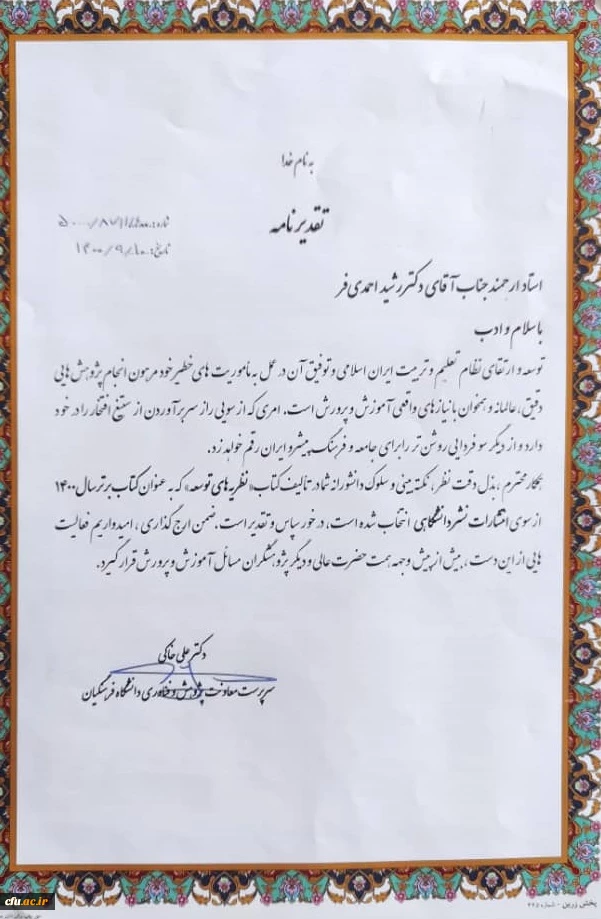 به نام خدا
تقدیرنامه
شماره: ۵۰۰۰۰/۸۷۱۱/
تاریخ: ۱۴۰۰/۹/۱۰
استاد ارجمند جناب آقای دکتر رشید احمدی فر
با سلام و ادب
توسعه و ارتقای نظام تعلیم و تربیت ایران اسلامی و توفیق آن در عمل به ماموریت های خطیر خود مرهون انجام پژوهش هایی
دقیق، عالمانه و همخوان با نیازهای واقعی آموزش و پرورش است. امری که از سویی راز سر برآوردن از ستیغ افتخار را در خود
دارد و از دیگر سو فردایی روشن تر را برای جامعه و فرهنگ پیشرو ایران رقم خواهد زد.
همکار محترم، بذل دقت نظر، نکته بینی و سلوک دانشورانه شما در تألیف کتاب «نظریه های توسعه» که به عنوان کتاب برتر سال ۱۴۰۰
از سوی انتشارات نشر دانشگاهی انتخاب شده است، در خور سپاس و تقدیر است. ضمن ارج گذاری، امیدواریم فعالیت
هایی از این دست، بیش از پیش وجهه همت حضرت عالی و دیگر پژوهشگران مسائل آموزش و پرورش قرار گیرد.
دکتر علی خاکی
سرپرست معاونت پژوهش و فناوری دانشگاه فرهنگیان
cfu.ac.ir
پخش زرین - شماره ۲۲۵